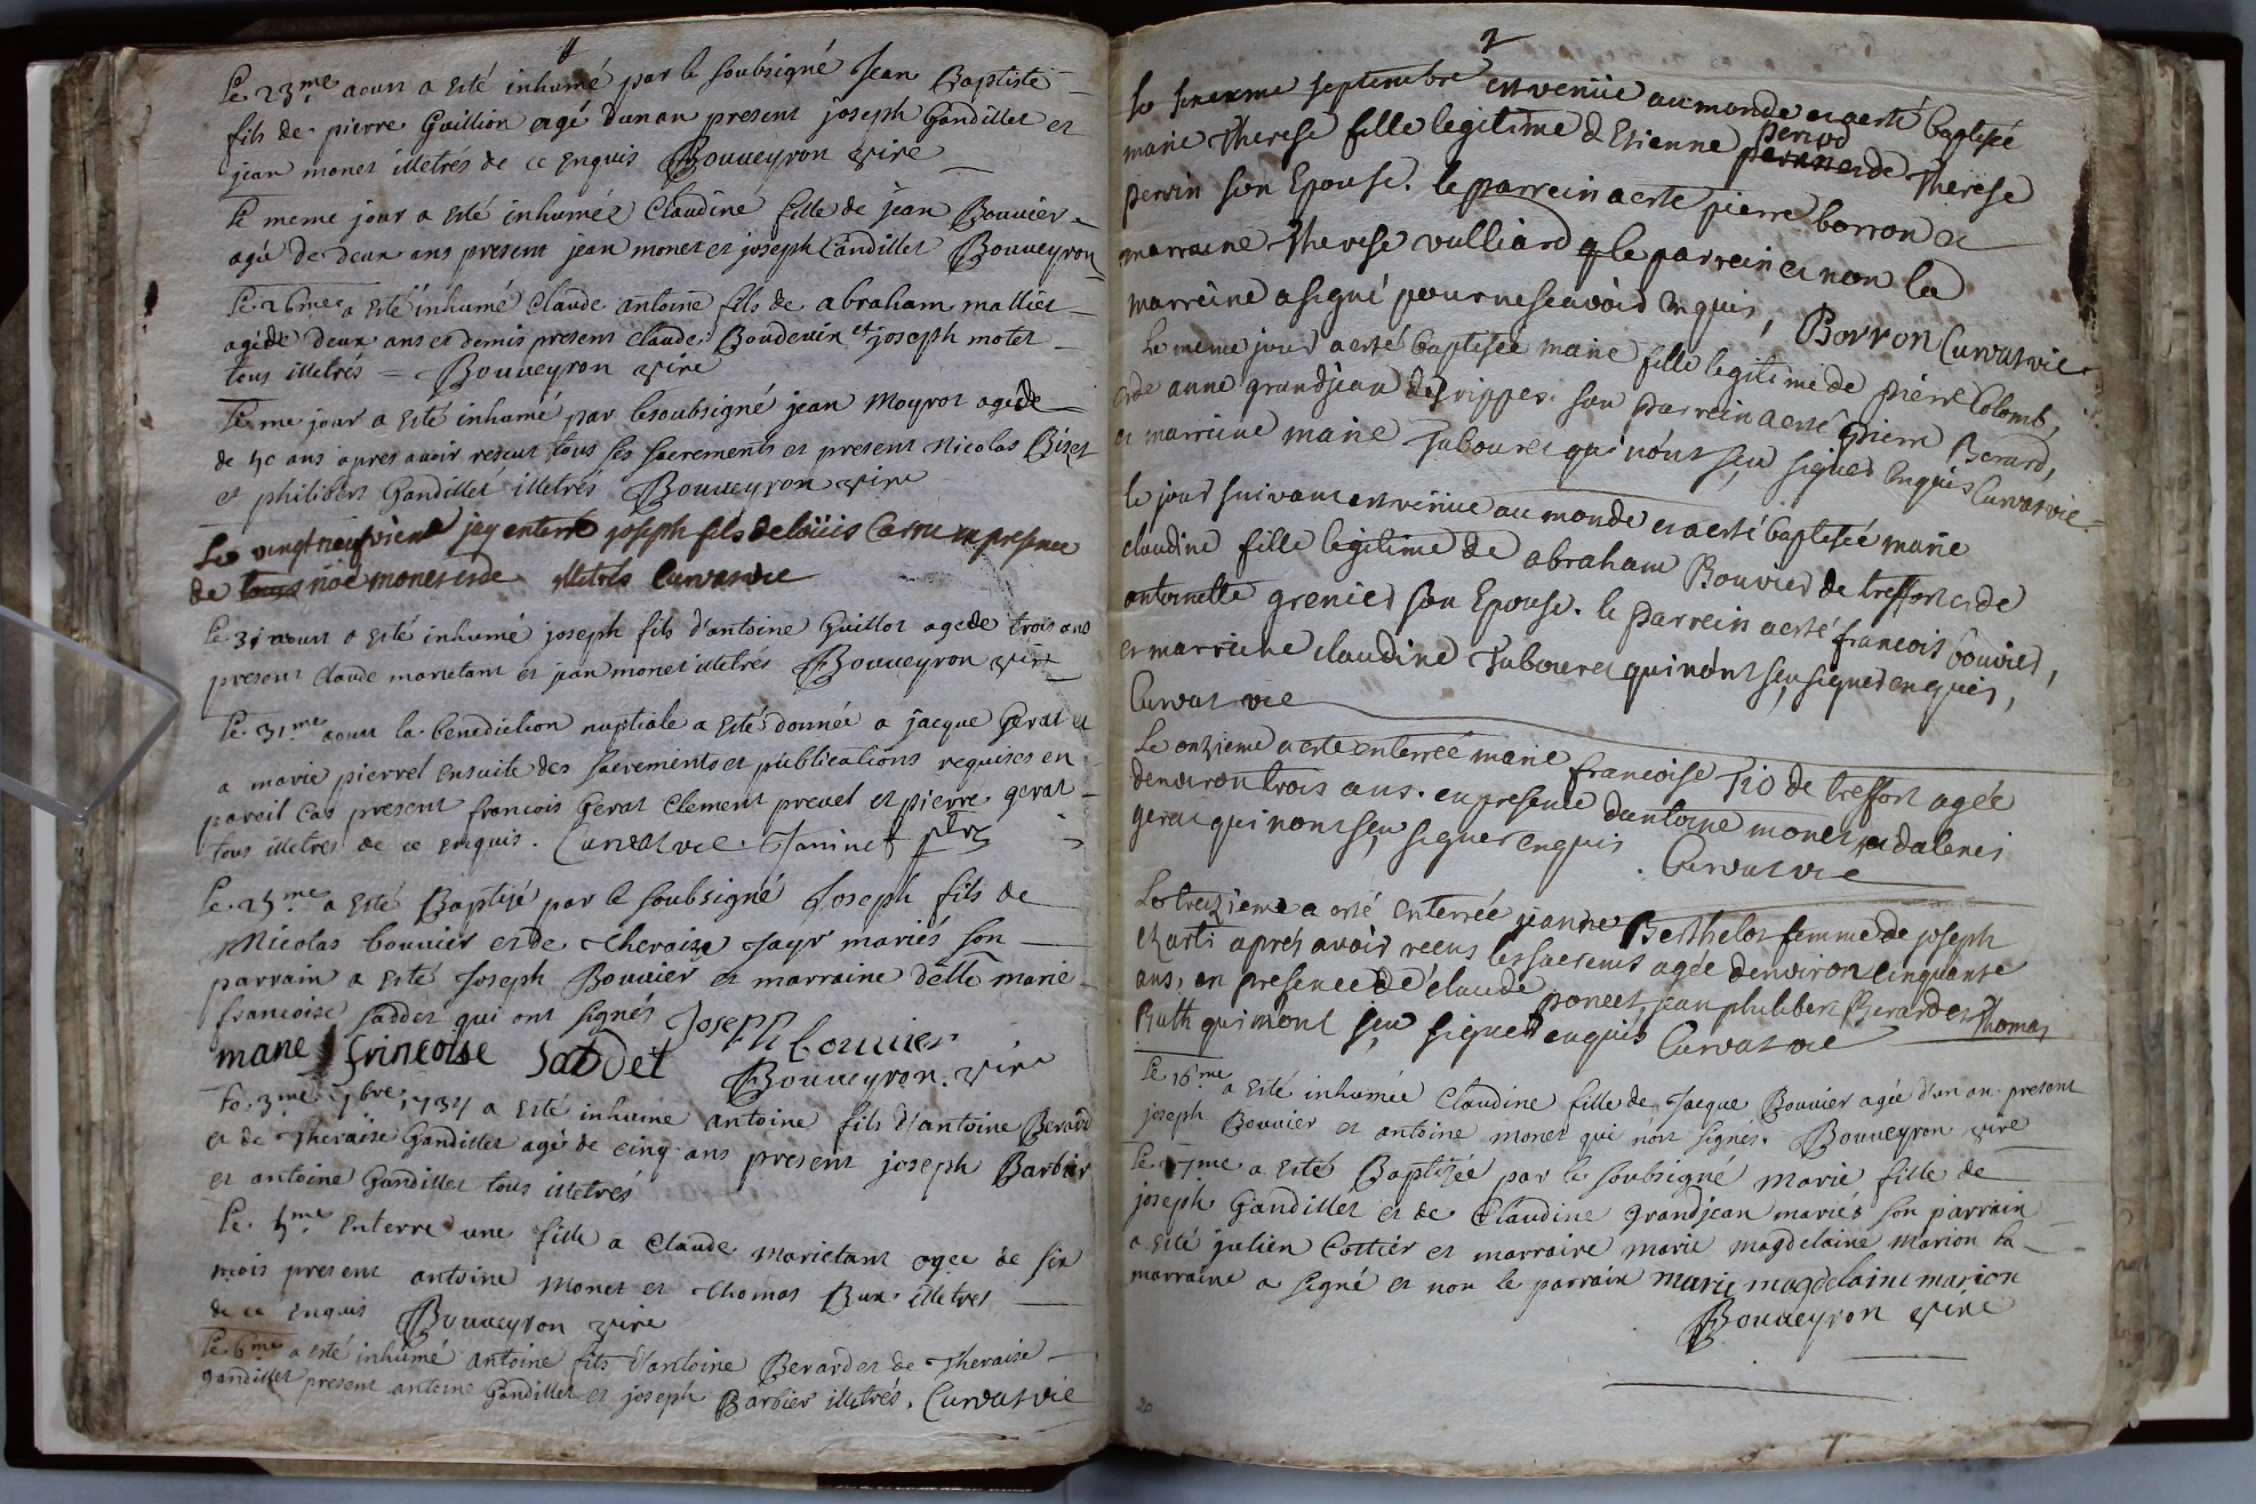 Le 23.me aoust a esté inhumé par le soubsigné Jean Baptiste
fils de pierre Guillion agé dun an present joseph Gandillet et
jean monet illetrés de ce enquis Bouueyron vire
Le meme jour a esté inhumée Claudine fille de jean Bouuier
agée de deux ans present jean monet et joseph Gandillet Bouueyron
Le 26.me a esté inhumé Claude antoine fils de abraham mallier
agé de deux ans et demis present claude Boudevin et joseph motet
tous illetrés Bouueyron vire
Le me jour a esté inhumé par lesoubsigné jean Moyrot agé de
de ans apres avoir reseut tous ses sacrements et present Nicolas Bizet
et philibert Gandillet illetrés Bouueyron vire
Le vingt neufvieme jay enterré joseph fils de loüis Carru en presence
de tous noé monet et de illetrés Curvat vic
Le 31 aoust a esté inhumé joseph fils d'antoine Guillot agé de trois ans
present Claude marietant et jean monet illetrés Bouueyron vire
Le 31.me aoust la benediction nuptiale a esté donnée a jacque Gerat et
a marie pierrel ensuite des sacrements et publications requises en
pareil Cas present francois Gerat Clement prevel et pierre gerat
tous illetres de ce enquis. Curvat vic. Janinet ptre
Le 25.me a esté Baptisé par le soubsigné Joseph fils de
Nicolas bouuier et de Theraize Jayr mariés son
parrain a esté Joseph Bouuier et marraine delle marie
francoise saddet qui ont signés Joseph bouuier
marie francoise Saddet Bouueyron. vire
Le 3.me 7bre 1734 a esté inhumé antoine fils d'antoine Berard
et de Theraise Gandillet agé de cinq ans present joseph Barbier
et antoine Gandillet tous illetrés
Le 5.me enterre une fille a Claude Marietant agee de six
mois present antoine Monet et Thomas Bux illetres
de ce enquis Bouueyron vire
Le 6.me a esté inhumé antoine fils d'antoine Berard et de Theraise
gandillet present antoine Gandillet et joseph Barbier illetrés. Curvat vic
2
Le septembre est venüe au monde et a esté baptisée
marie Therese fille legitime d Etienne perrod et de Therese
pervin son Epouse. le parrein a esté pierre borron et
marraine Therese vulliard le parrein et non la
marreine a signé pour ne scavoir enquis, Borron Curvat vic
Le meme jour a esté baptisée marie fille legitime de pierre Colomb,
et de anne grandjean des rippes. son parrein a esté pierre Berard,
et marreine marie Tabouret qui n'ont sçu signer enquis Curvat vic
le jour suivant est venüe au monde et a esté baptisée marie
claudine fille legitime de abraham Bouvier de treffort et de
antoinette grenier son Epouse. le parrein a esté francois bouvier,
et marreine claudine Tabouret qui n'ont sçu signer enquis,
Curvat vic
Le onzieme a esté enterrée marie francoise Tio de treffort agée
denviron trois ans. en presence dantoine monet, et dalenis
gerat qui nont sçu signer enquis. Curvat vic
Le treizieme a esté enterrée jeanne Berthelot femme de joseph
aprés avoir receus les sacremts agée denviron cinquante
ans, en presence de claude poncet, jean philibert Berard et Thomas
Buth qui n'ont sçu signer enquis Curvat vic
Le 16.me a esté inhumée Claudine fille de Jacque Bouuier agée d'un an present
joseph Bouuier et antoine monet qui nont signés. Bouueyron vire
Le 17.me a esté Baptizée par le soubsigné Marie fille de
joseph Gandillet et de Claudine grandjean mariés son parrain
a esté julien Cottier et marraine marie magdelaine marion la
marraine a signé et non le parrain marie magdelaine marion
Bouueyron vire
20